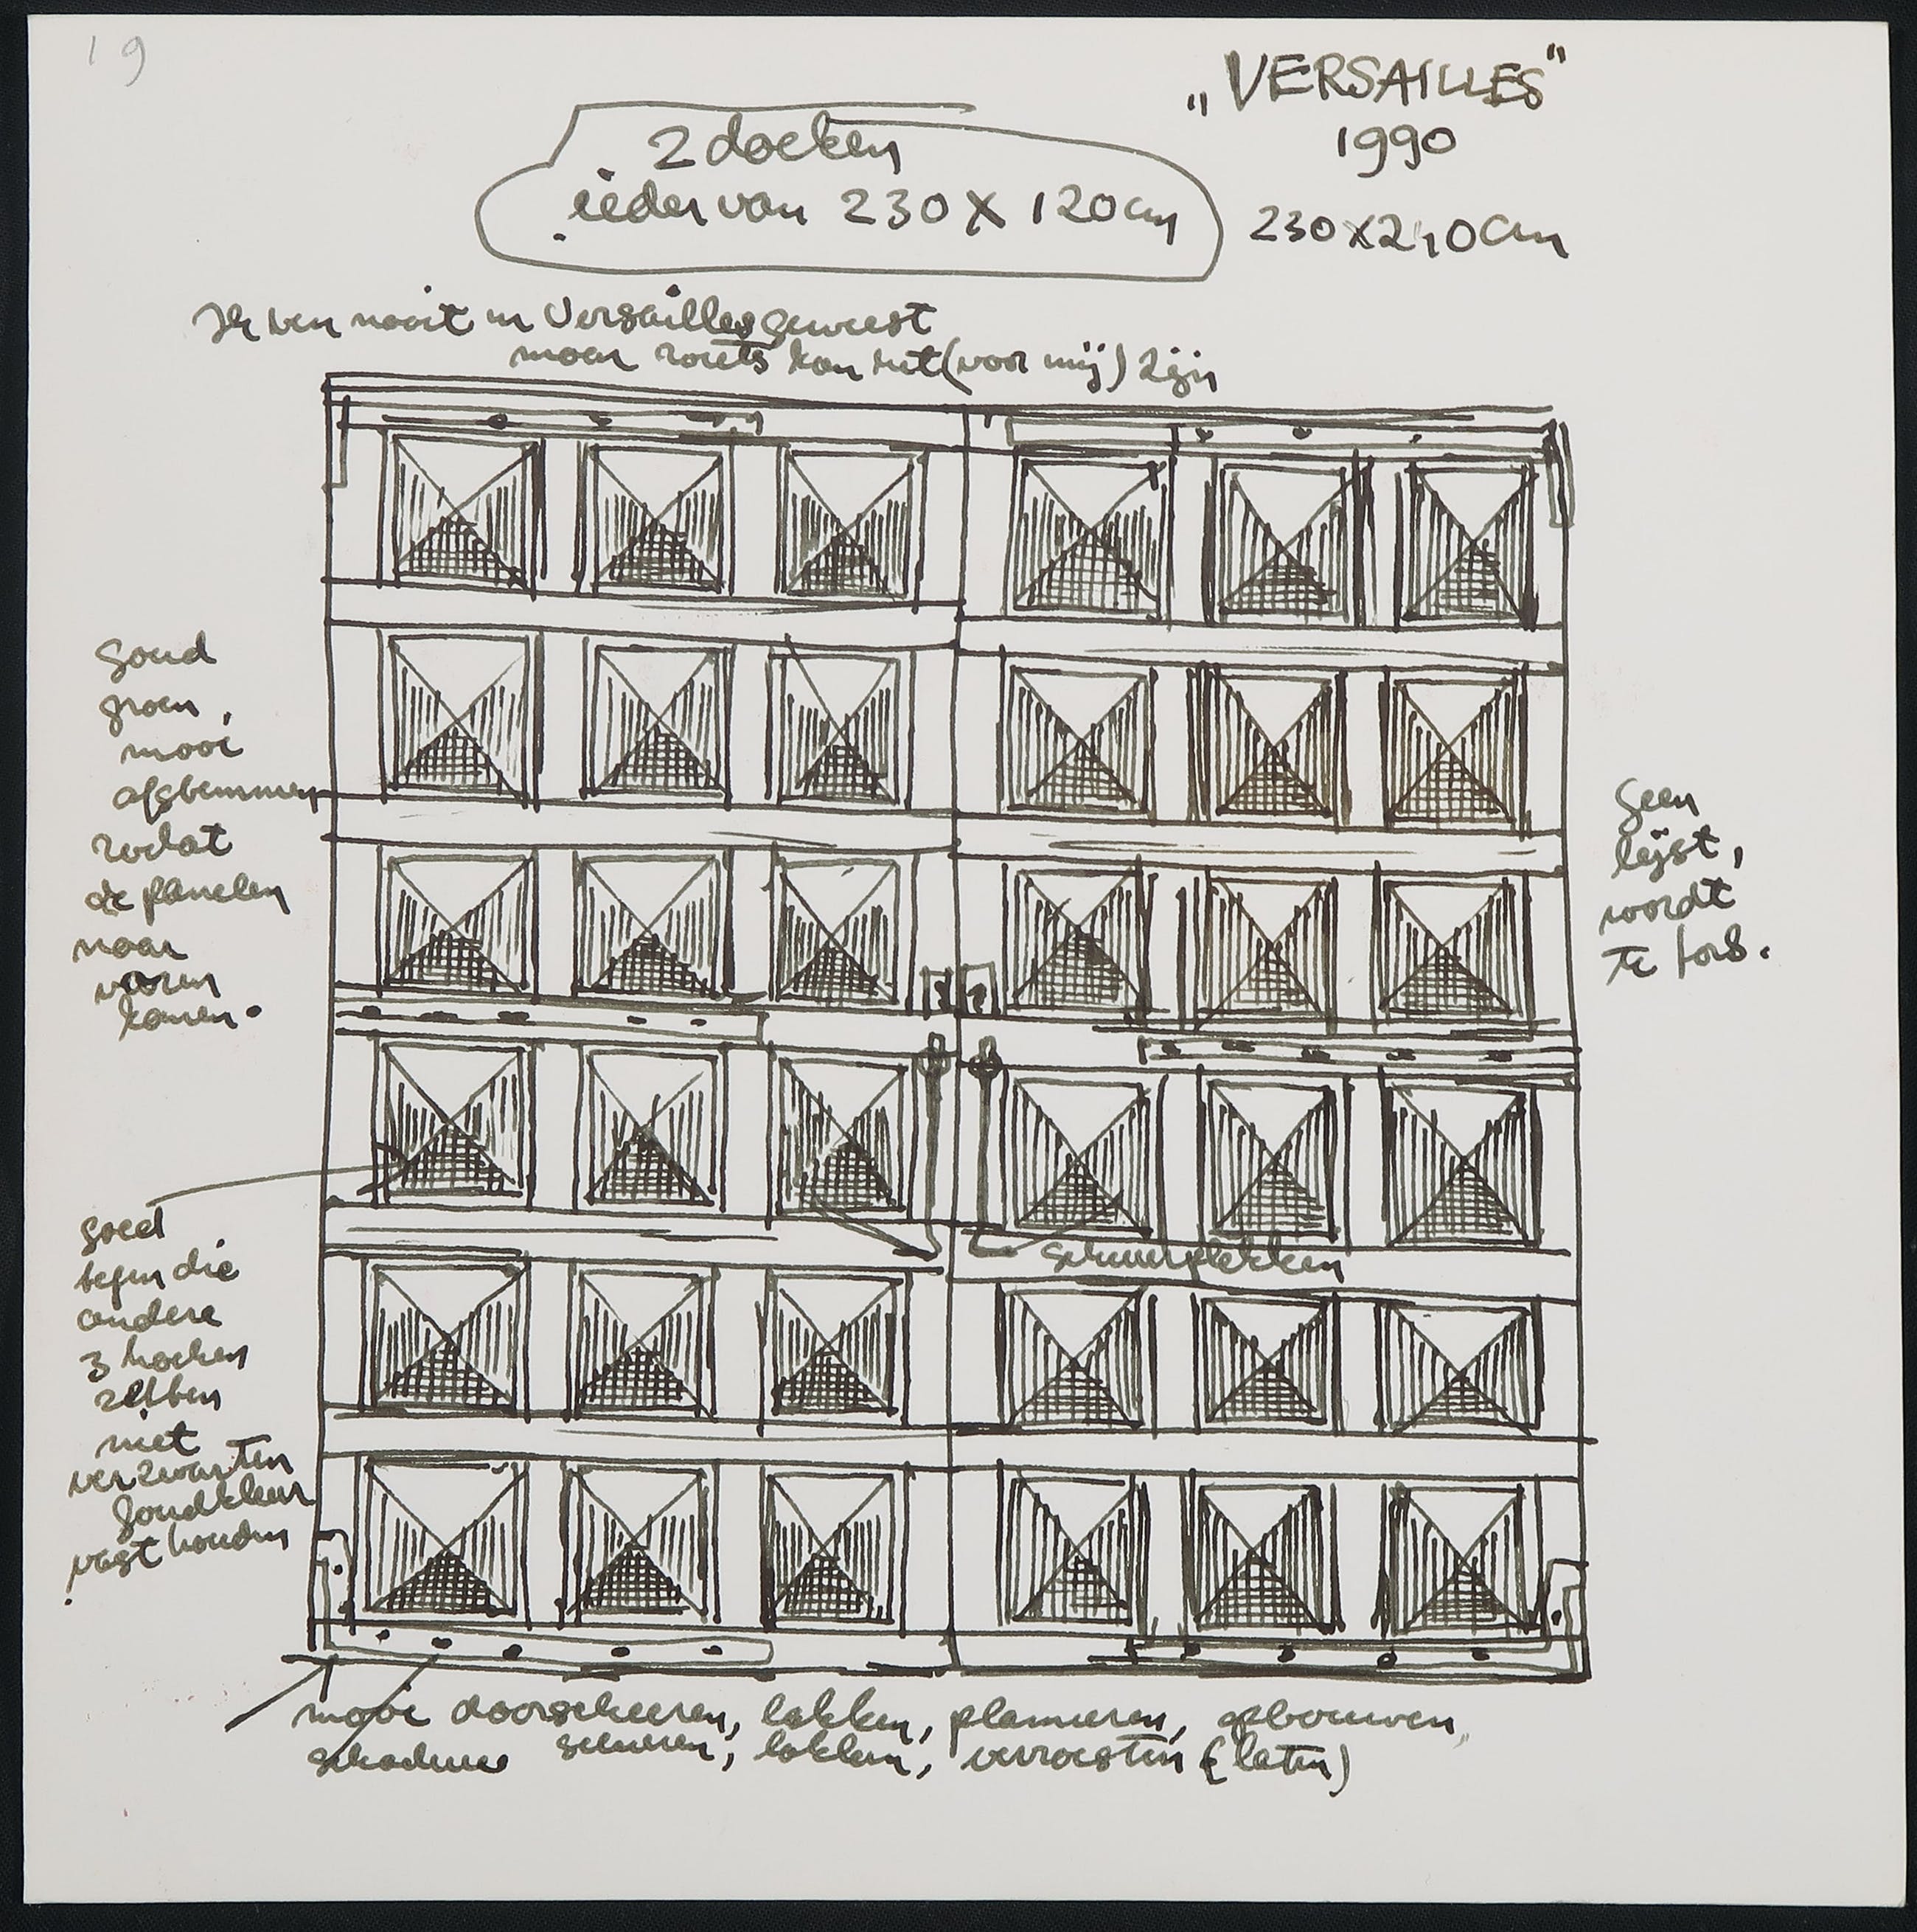 19
„VERSAILLES"
1990
2 doeken
ieder van 230 X 120 cm
230 X 240 cm
Ik ben nooit in Versailles geweest
maar zoiets kan het (voor mij) zijn
goud
groen,
mooi
afstemmen
zodat
de panelen
naar
voren
komen.
Geen
lijst,
wordt
te fors.
goed
tegen die
andere
3 hoeken
zetten
niet
verzwarten
goudkleur
vast houden
schuurplekken
mooi doorscheuren, lakken, plamuren, opbouwen,
schaduw schuren, lakken, verroesten (laten)